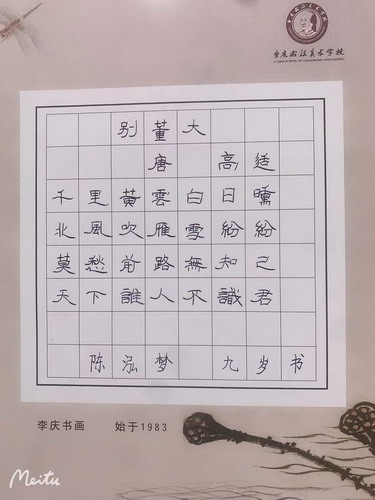 重庆书法美术学校
别董大
唐 高适
千里黄雲白日曛
北風吹雁雪紛紛
莫愁前路無知己
天下誰人不識君
陈泓梦 九岁书
李庆书画 始于1983
Meitu